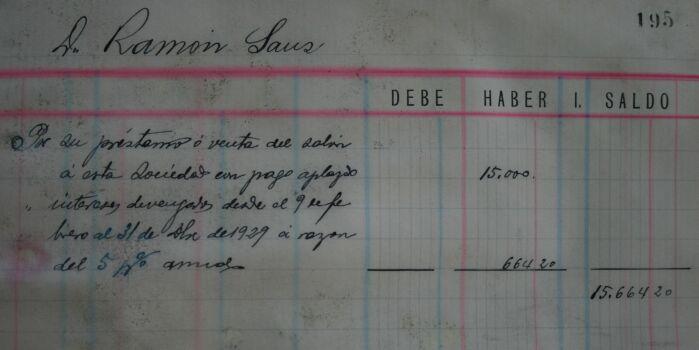 195
Dn Ramon Saus
DEBE HABER I. SALDO
Por su préstamo ó venta del salón
á esta Sociedad con pago aplazado 15.000.
" intereses devengados desde el 9 de fe
" brero al 31 de Dbre de 1929 á razon
del 5 p% anual 664 20
15.664 20